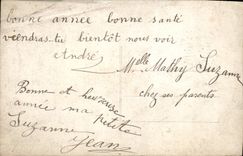 bonne année bonne santé
viendras-tu bientôt nous voir
André
Melle Mathy Suzanne
chez ses parents
Bonne et heureuse
année ma petite
Suzanne
Jean